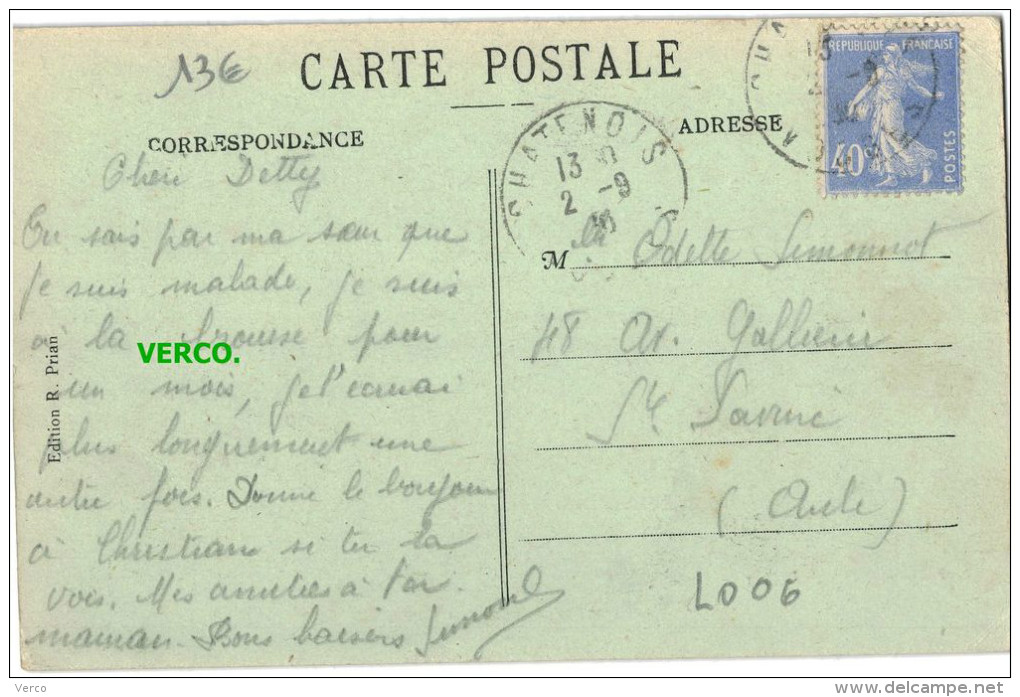 13€
CARTE POSTALE
CORRESPONDANCE
ADRESSE
RÉPUBLIQUE FRANÇAISE
40
POSTES
CHATENOIS
13
2 -9
Cheri Detty
Tu sais par ma sœur que
je suis malade, je suis
à la pour
un mois, je t'
plus longuement une
autre fois. Donne le bonjour
à Christian si tu la
vois. Mes amitiés à ta
maman. Bons baisers Simone
M Odette Simonnot
48 Av. Gallieni
Ste Savine
(Aube)
L006
Edition R. Prian
VERCO.
Verco
www.delcampe.net